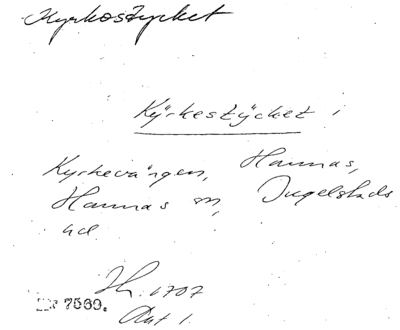 Kyrkostycket
Kÿrkestÿcket i
Kyrkevången, Hannas,
Hannas sn, Ingelstads
hd.
Jb. 1707
Ant 1.
7569.